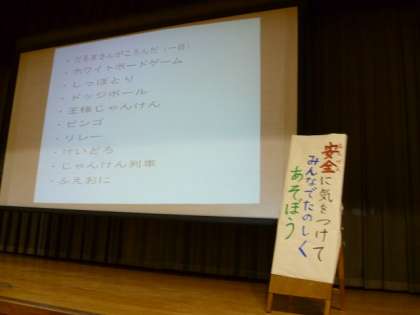 ・だるまさんがころんだ(一日)
・ホワイトボードゲーム
・しっぽとり
・ドッジボール
・王様じゃんけん
・ビンゴ
・リレー
・けいどろ
・じゃんけん列車
・ふえおに
安全に気をつけて
みんなでたのしく
あそぼう